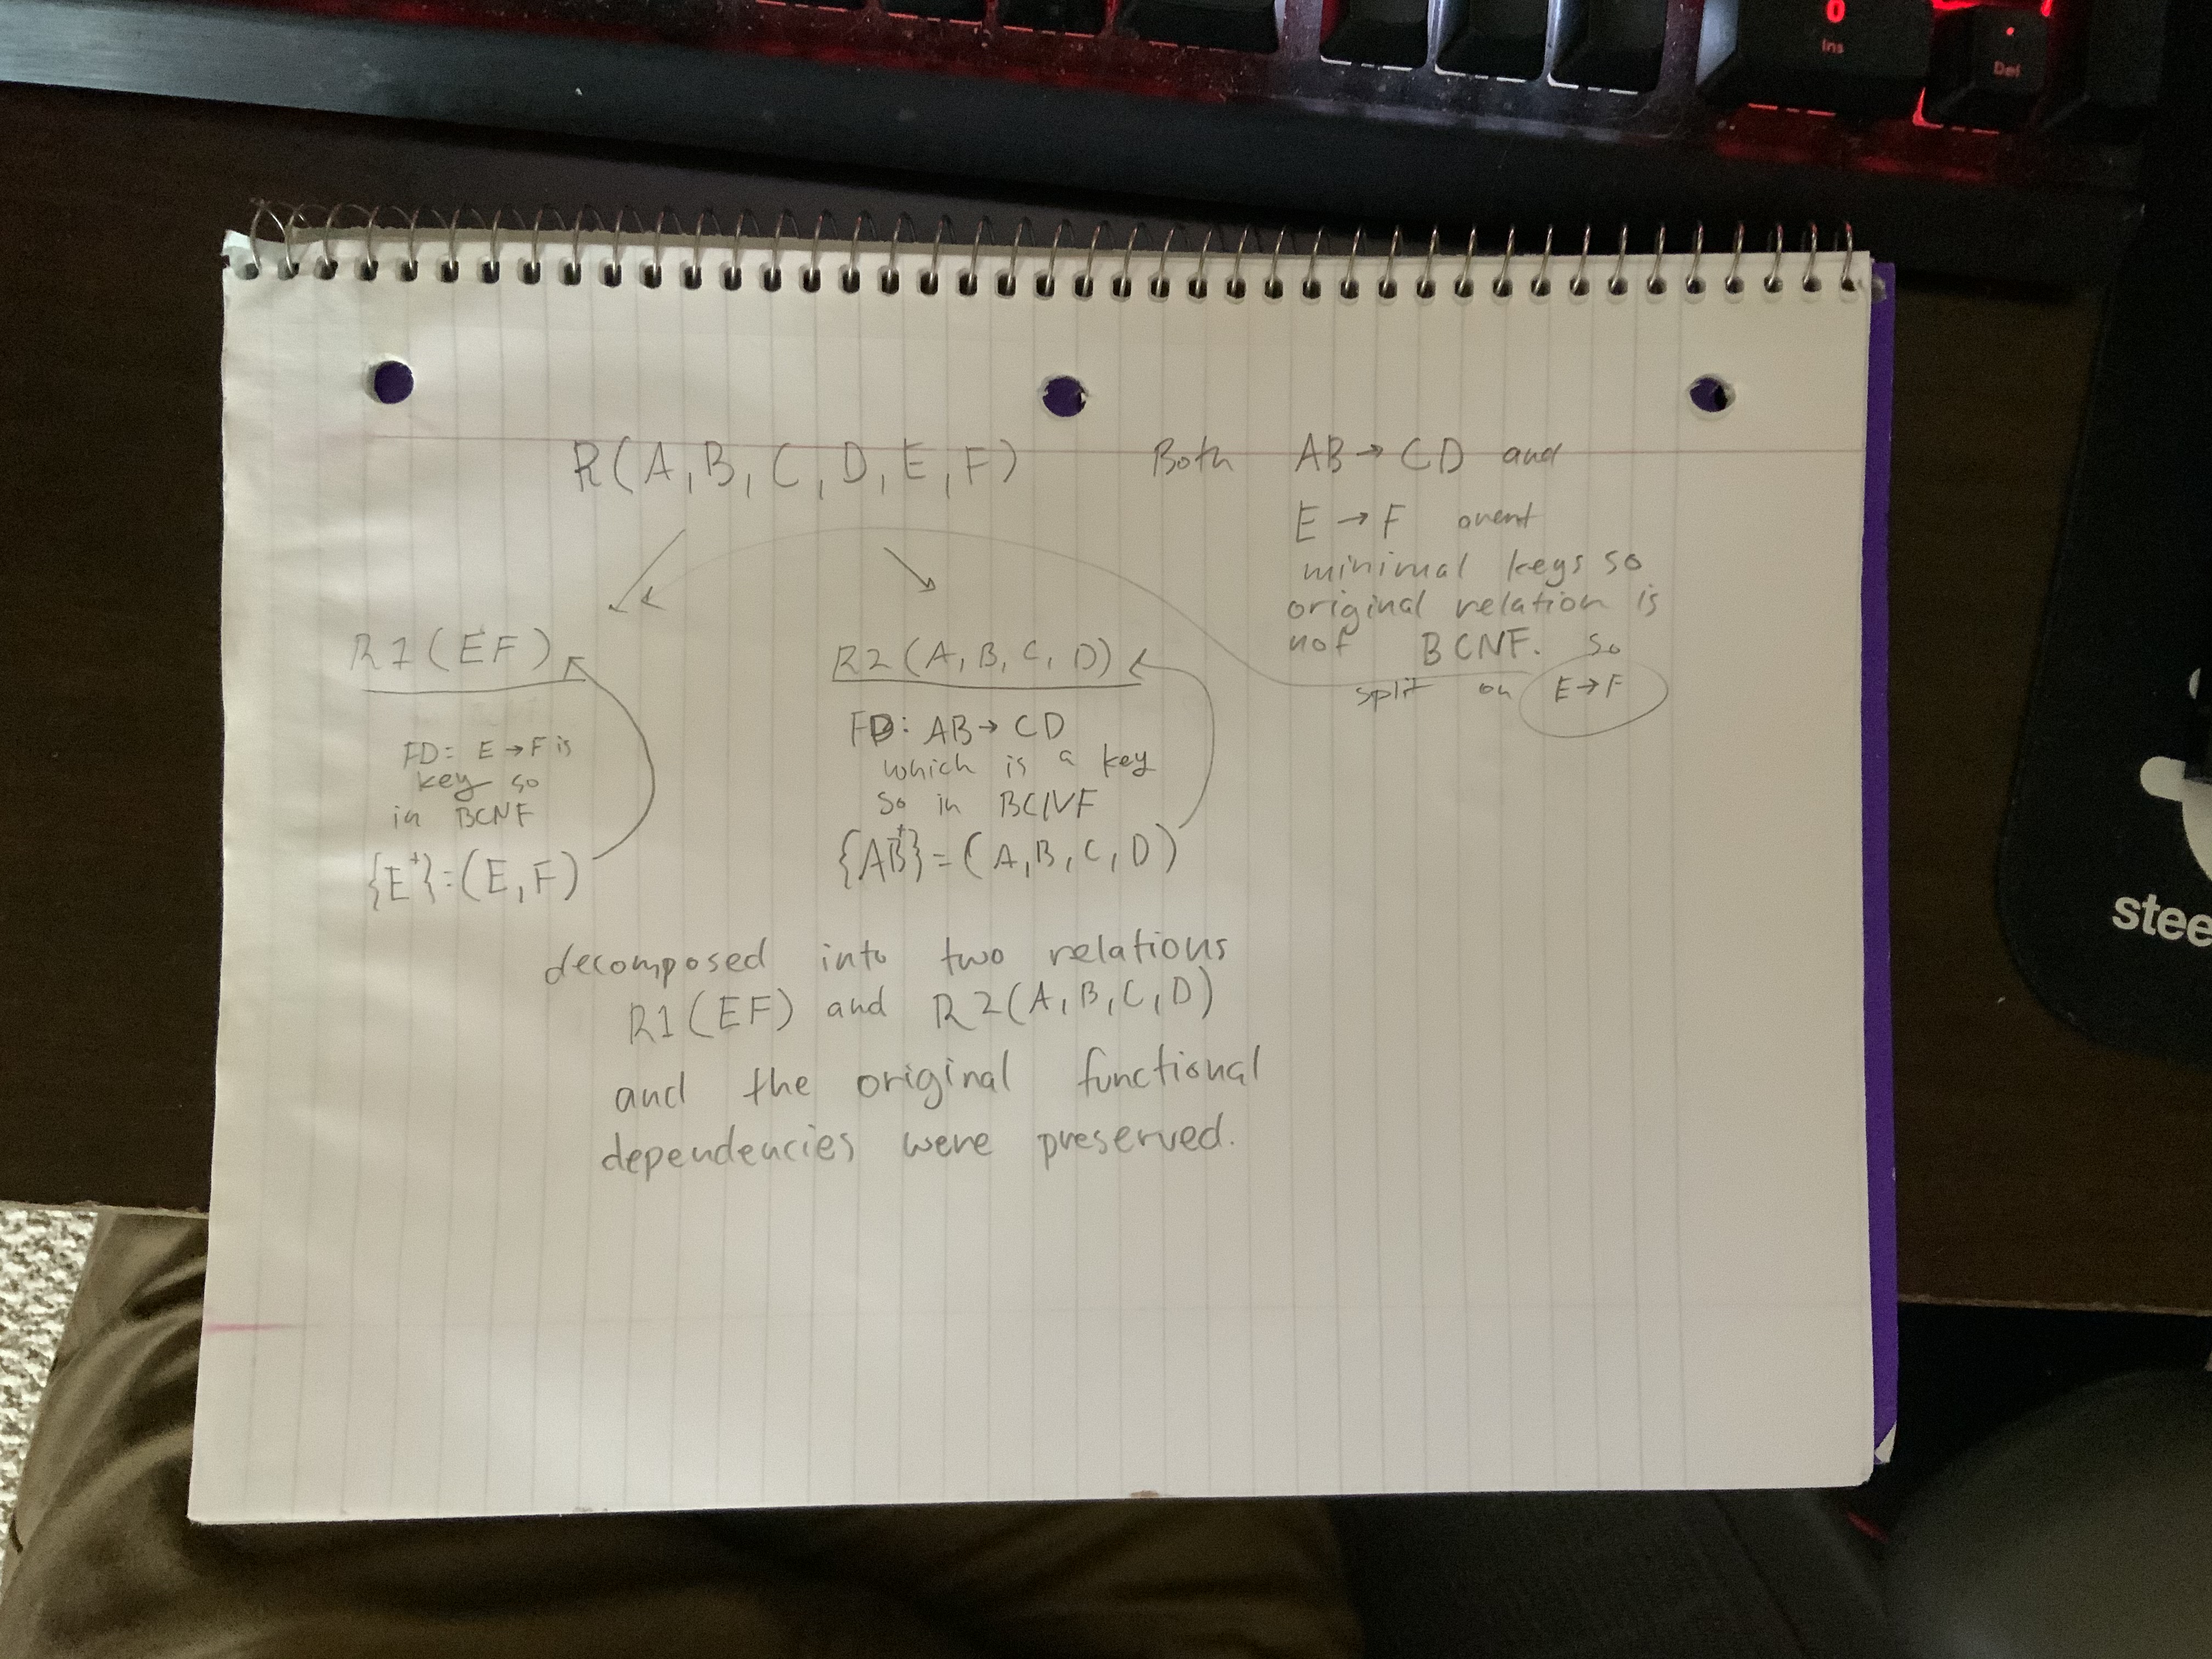 0
Ins
.
Del
R(A,B,C,D,E,F)
Both AB→CD and
E→F arent
minimal keys so
original relation is
not BCNF. so
split on E→F
R1(EF)
FD: E→F is
key so
in BCNF
{E⁺}=(E,F)
R2(A,B,C,D)
FD: AB→CD
which is a key
so in BCNF
{AB⁺}=(A,B,C,D)
decomposed into two relations
R1(EF) and R2(A,B,C,D)
and the original functional
dependencies were preserved.
stee